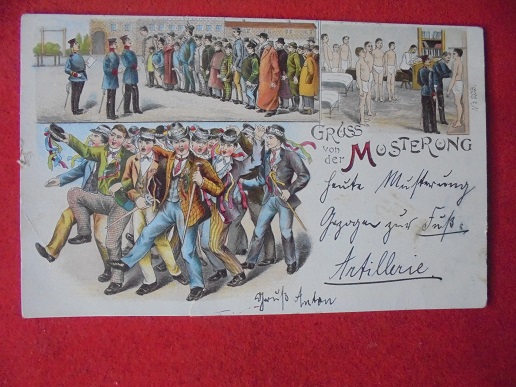 GRUSS
von
der MUSTERUNG
heute Musterung
Gezogen zur Fuß-
Artillerie.
Gruß Anton